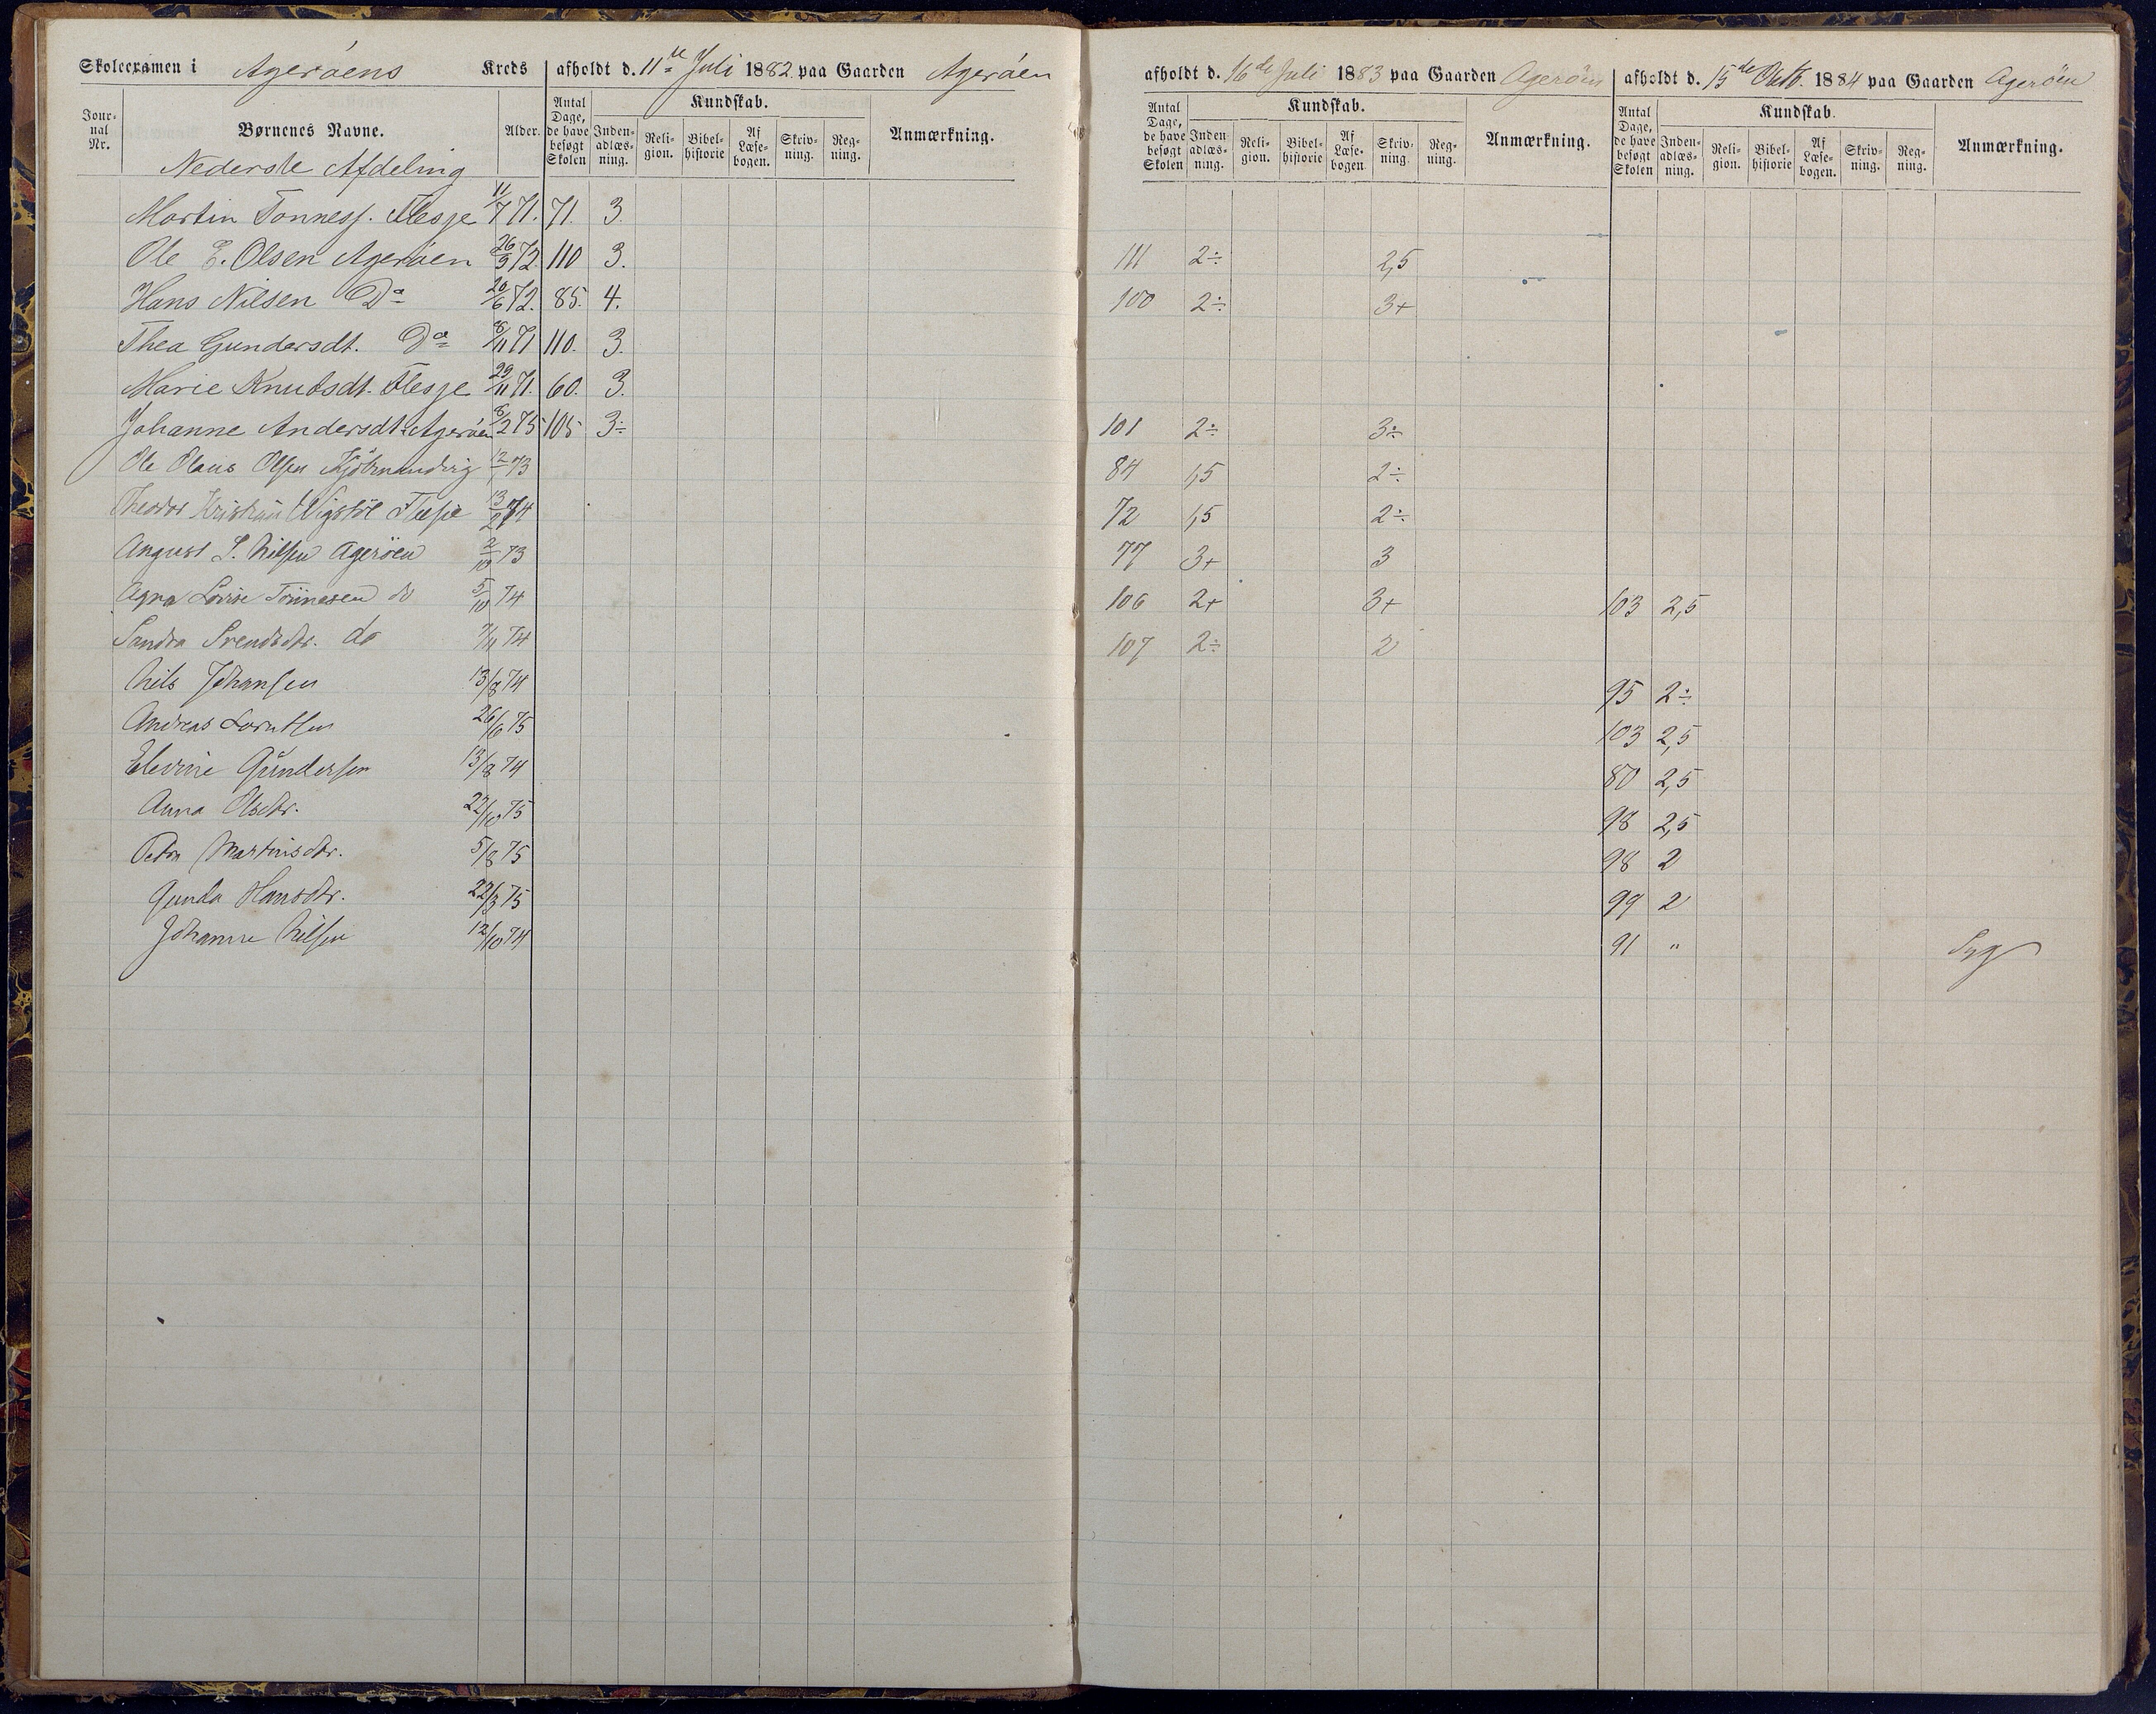 Skoleexamen i Agerøens Kreds afholdt d. 11te Juli 1882 paa Gaarden Agerøen afholdt d. 16de Juli 1883 paa Gaarden Agerøen afholdt d. 15de Oktb. 1884 paa Gaarden Agerøen
Jour-nal Nr. Børnenes Navne. Alder. Antal Dage, de have besøgt Skolen Kundskab. Inden-adlæs-ning. Reli-gion. Bibel-historie Af Læse-bogen. Skriv-ning. Reg-ning. Anmærkning. Antal Dage, de have besøgt Skolen Kundskab. Inden-adlæs-ning. Reli-gion. Bibel-historie Af Læse-bogen. Skriv-ning. Reg-ning. Anmærkning. Antal Dage, de have besøgt Skolen Kundskab. Inden-adlæs-ning. Reli-gion. Bibel-historie Af Læse-bogen. Skriv-ning. Reg-ning. Anmærkning.
Nederste Afdeling
Martin Tønness. Flesje 11/7 71. 71. 3.
Ole E. Olsen Agerøen 26/9 72. 110 3. 111 2÷ 2,5
Hans Nilsen Do 20/6 72. 85. 4. 100 2÷ 3+
Thea Gundersdt. Do 8/11 71 110. 3.
Marie Knutsdt. Flesje 29/11 71. 60. 3.
Johanne Andersdt. Agerøen 8/2 75 105 3÷ 101 2÷ 3÷
Ole Olaus Olsen 73 84 1,5 2÷
Theodor Kristian Flesje 13/2 74 72 1,5 2÷
August S. Nilsen Agerøen 2/10 73 77 3+ 3
Agna Lovise Tönnesen do 5/10 74 106 2+ 3+ 103 2,5
Sandra Svendsdtr. do 7/11 74 107 2÷ 2
Nils Johansen 13/8 74 95 2÷
Andreas Lorntsen 26/6 75 103 2,5
Elevine Gundersen 13/8 74 80 2,5
Anna Olsdtr. 22/10 75 98 2,5
Petra Martinsdtr. 5/8 75 98 2
Gunda Hansdtr. 22/3 75 99 2
Johanne Nilsen 12/10 74 91 " Syg